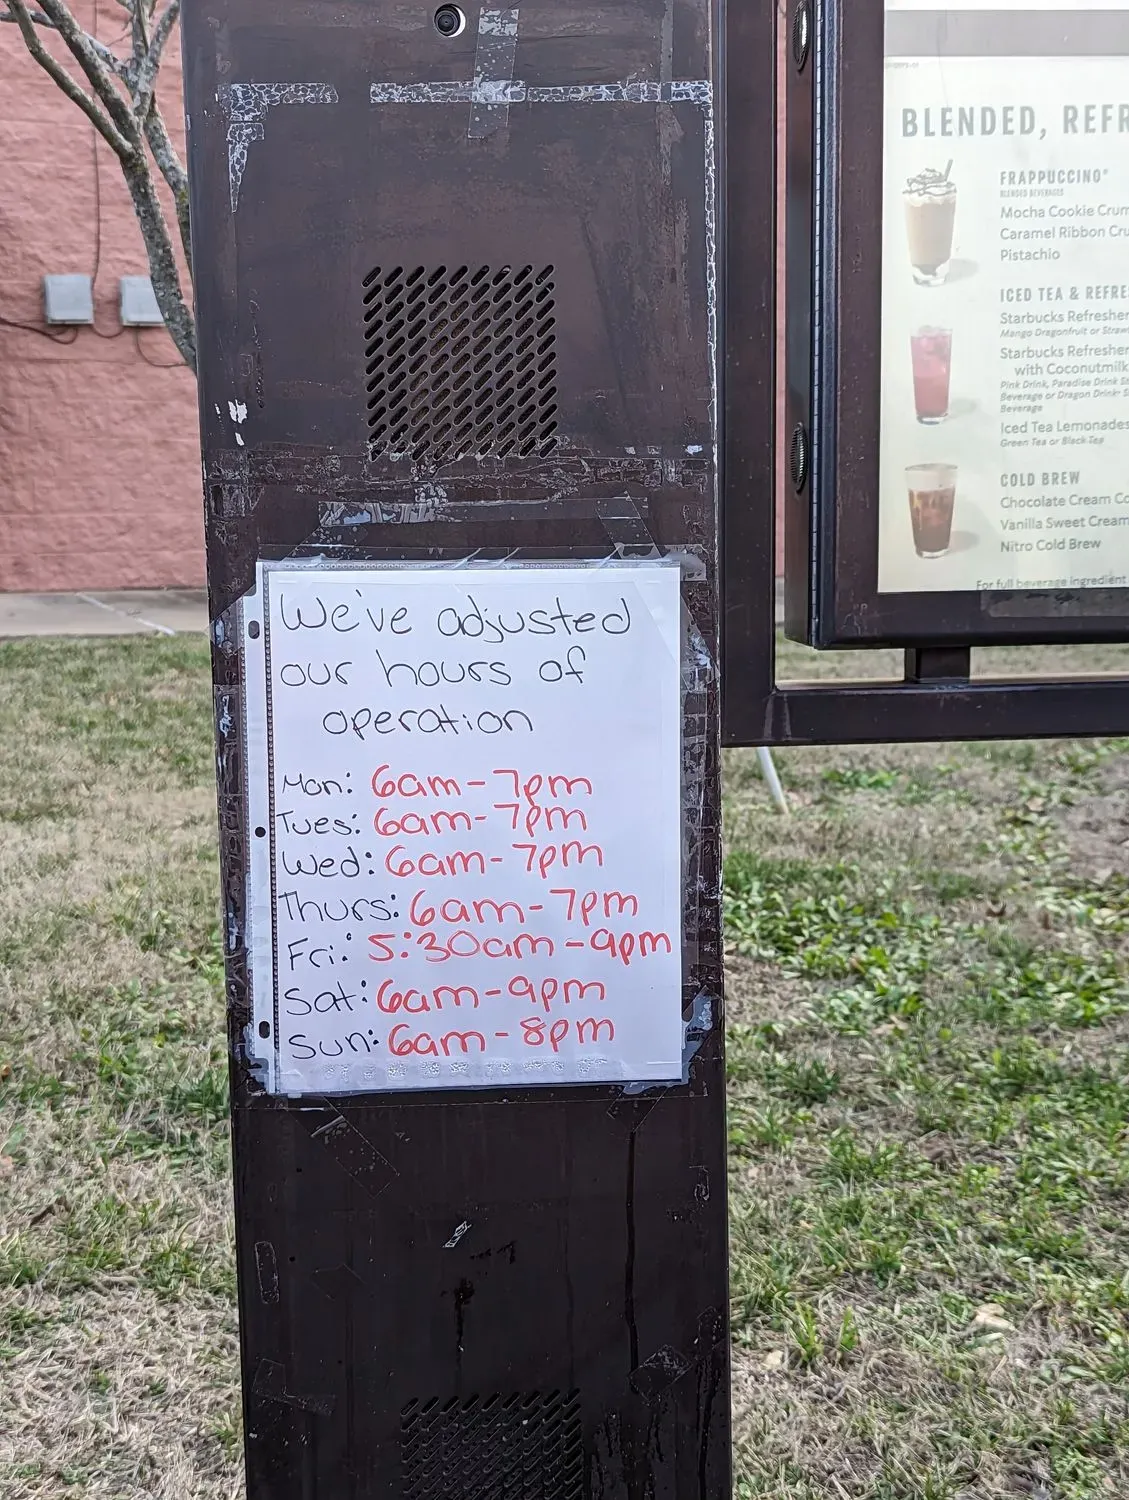 We've adjusted
our hours of
operation
Mon: 6am-7pm
Tues: 6am-7pm
Wed: 6am-7pm
Thurs: 6am-7pm
Fri: 5:30am-9pm
Sat: 6am-9pm
Sun: 6am-8pm
BLENDED, REFR
FRAPPUCCINO®
BLENDED BEVERAGES
Mocha Cookie Crum
Caramel Ribbon Cru
Pistachio
ICED TEA & REFRE
Starbucks Refresher
Mango Dragonfruit or Straw
Starbucks Refresher
with Coconutmilk
Pink Drink, Paradise Drink St
Beverage or Dragon Drink® St
Beverage
Iced Tea Lemonades
Green Tea or Black Tea
COLD BREW
Chocolate Cream Co
Vanilla Sweet Cream
Nitro Cold Brew
For full beverage ingredient